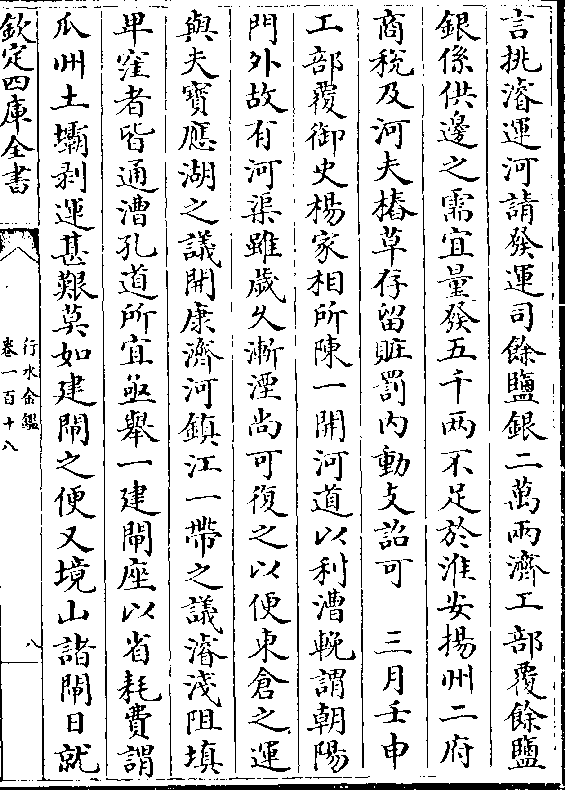 言挑濬運河請發運司餘鹽銀二萬兩濟工部覆餘鹽
銀係供邊之需宜量發五千兩不足於淮安揚州二府
商稅及河夫樁草存留贓罰内動支詔可　三月壬申
工部覆御史楊家相所陳一開河道以利漕輓謂朝陽
門外故有河渠雖歲久漸湮尚可復之以便東倉之運
與夫寶應湖之議開康濟河鎮江一帶之議濬淺阻填
卑窪者皆通漕孔道所宜亟舉一建閘座以省耗費謂
瓜州土壩剥運甚艱莫如建閘之便又境山諸閘日就
欽定四庫全書
行水金鑑
卷一百十八
八